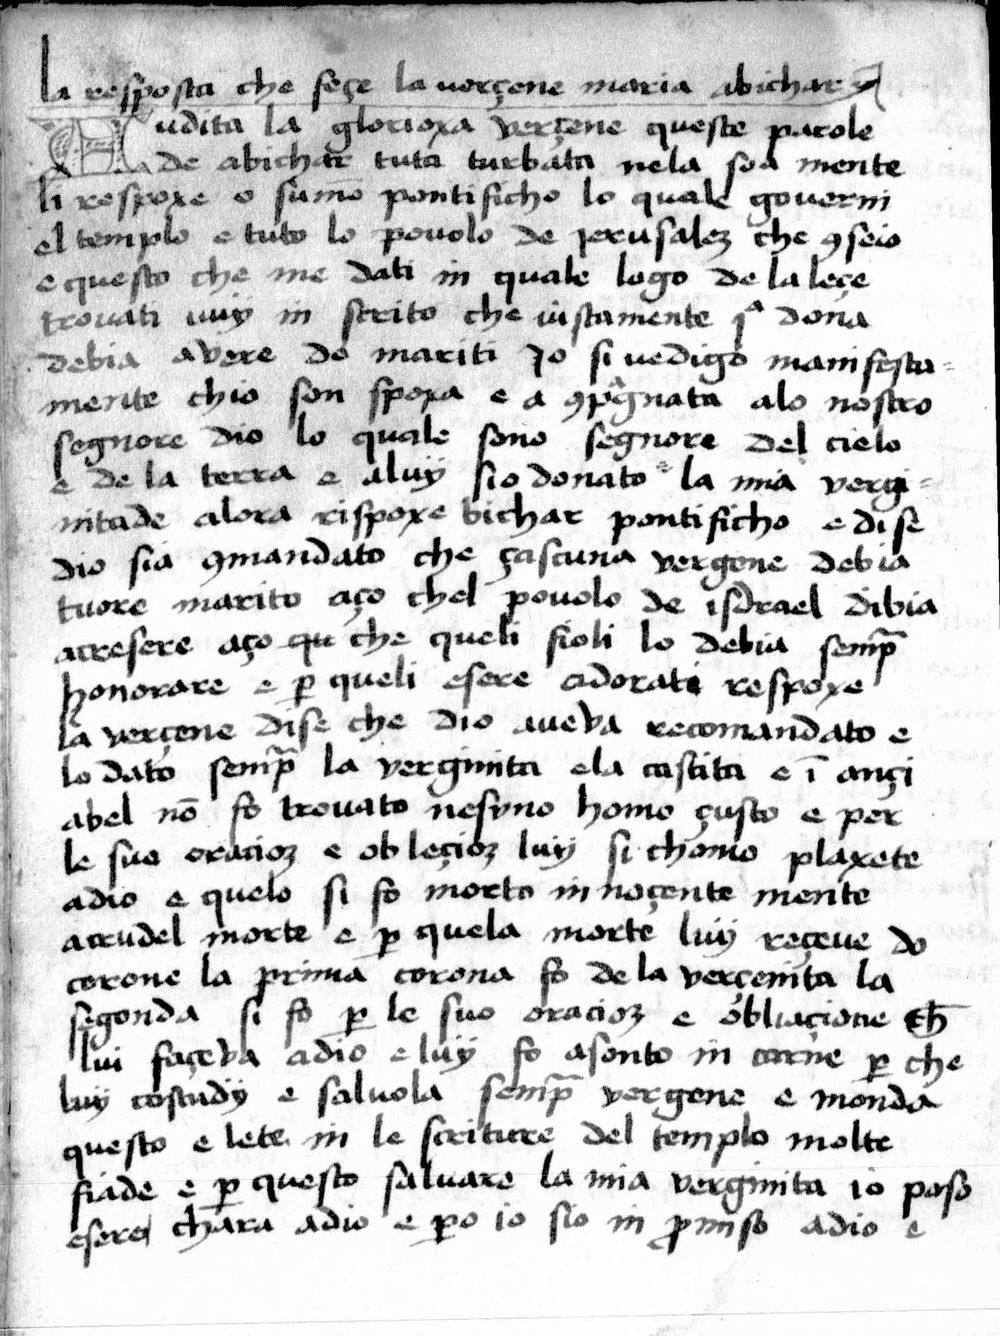 la resposta che feçe la verçene maria abichar
Audita la glorioxa verçene queste parole
de abichar tuta turbata nela soa mente
li respoxe o sumo pontificho lo quale governi
el templo e tuto lo povolo de Jerusalez che ꝯseio
e questo che me dati in quale logo de la leçe
trovati vuy in scrito che iustamente q̄a dona
debia avere do mariti Jo si ve digo manifesta-
mente chio son spoxa e a ꝯpagnata alo nostro
segnore dio lo quale sono segnore del cielo
e de la terra e aluy sio donato la mia vergi-
nitade alora rispoxe bichar pontificho e dise
dio sia ꝯmandato che çascuna vergene debia
tuore marito aço chel povolo de isdrael dibia
acresere aço qu che queli fioli lo debia semp̄
honorare e ꝑ queli esere adorati respoxe
la verçene dise che dio aveva recomandato e
lodato semp̄ la verginita e la castita e ī ançi
abel nō fo trovato nesuno homo çusto e per
le suo oracioz e obleçioz luy si chomo plaxete
adio e quelo si fo morto innoçente mente
acrudel morte e ꝑ quela morte luy reçeve do
corone la prima corona fo de la verçenita la
segonda si fo ꝑ le suo oracioz e obliaçione ch̄
lui façeva adio e luy fo asonto in carne ꝑ che
luy costudy e salvola semp̄ vergene e monda
questo e lete in le scriture del templo molte
fiade e ꝑ questo salvare la mia verginita io poso
esere chara adio e ꝑo io sio in ꝓmiso adio e